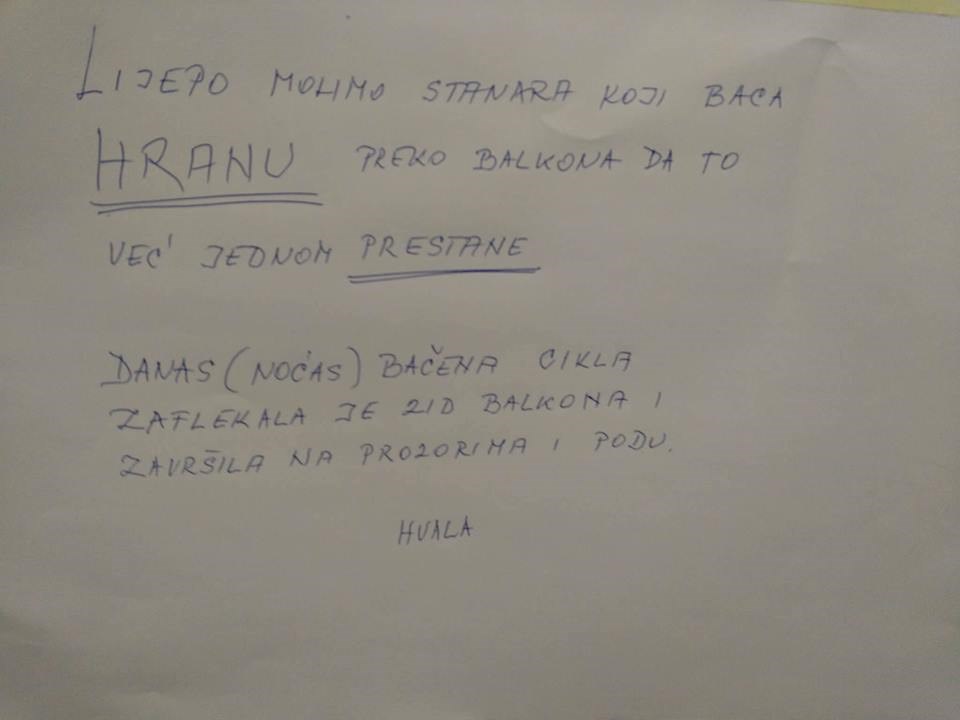 LIJEPO MOLIMO STANARA KOJI BACA
HRANU PREKO BALKONA DA TO
VEĆ JEDNOM PRESTANE
DANAS (NOĆAS) BAČENA CIKLA
ZAFLEKALA JE ZID BALKONA I
ZAVRŠILA NA PROZORIMA I PODU.
HVALA